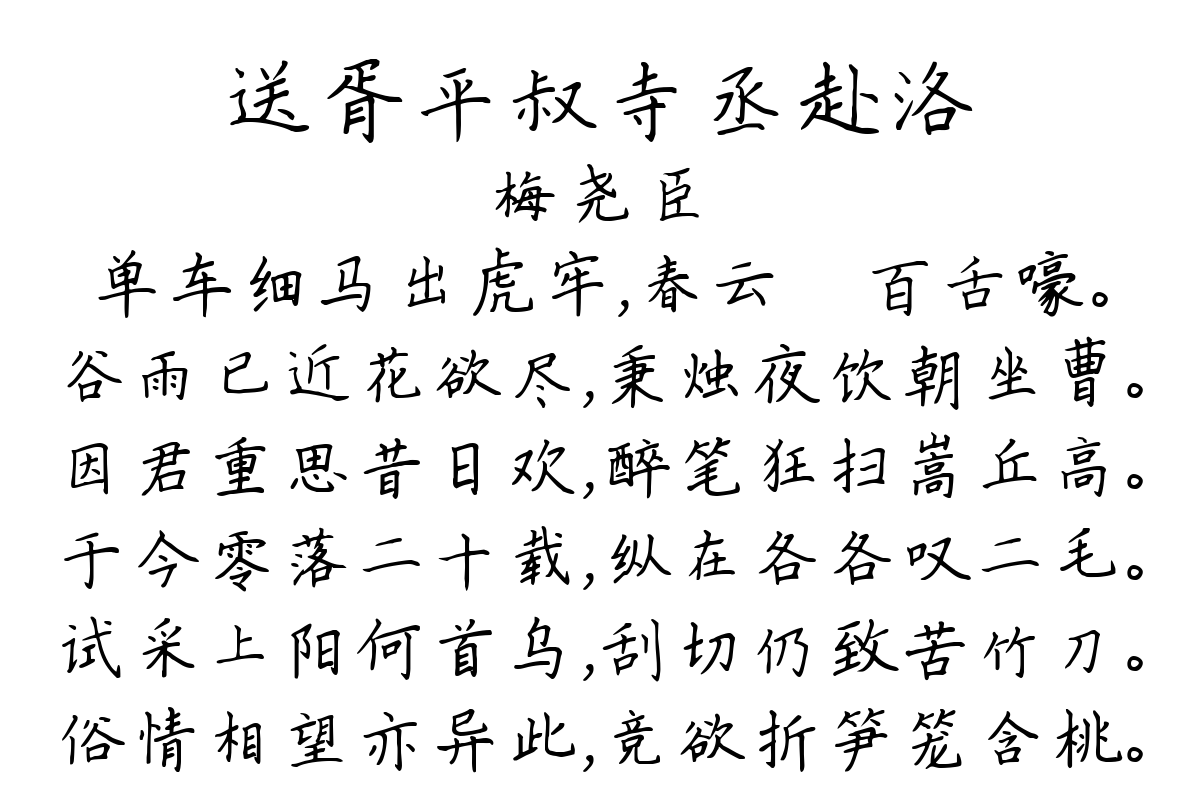 送胥平叔寺丞赴洛
梅尧臣
单车细马出虎牢,春云 百舌嚎。
谷雨已近花欲尽,秉烛夜饮朝坐曹。
因君重思昔日欢,醉笔狂扫嵩丘高。
于今零落二十载,纵在各各叹二毛。
试采上阳何首乌,刮切仍致苦竹刀。
俗情相望亦异此,竞欲折笋笼含桃。